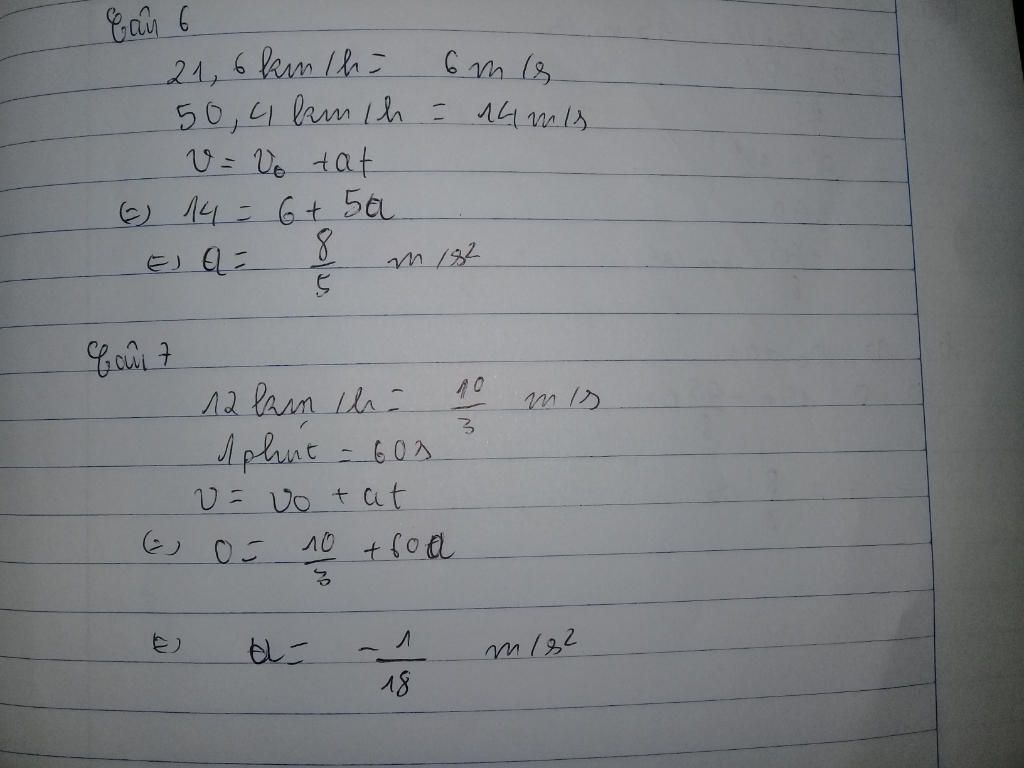 Câu 6
21,6 km/h = 6 m/s
50,4 km/h = 14 m/s
v = v₀ + at
(=) 14 = 6 + 5a
(=) a = 8/5 m/s²
Câu 7
12 km/h = 10/3 m/s
1 phút = 60s
v = v₀ + at
(=) 0 = 10/3 + 60a
(=) a = -1/18 m/s²